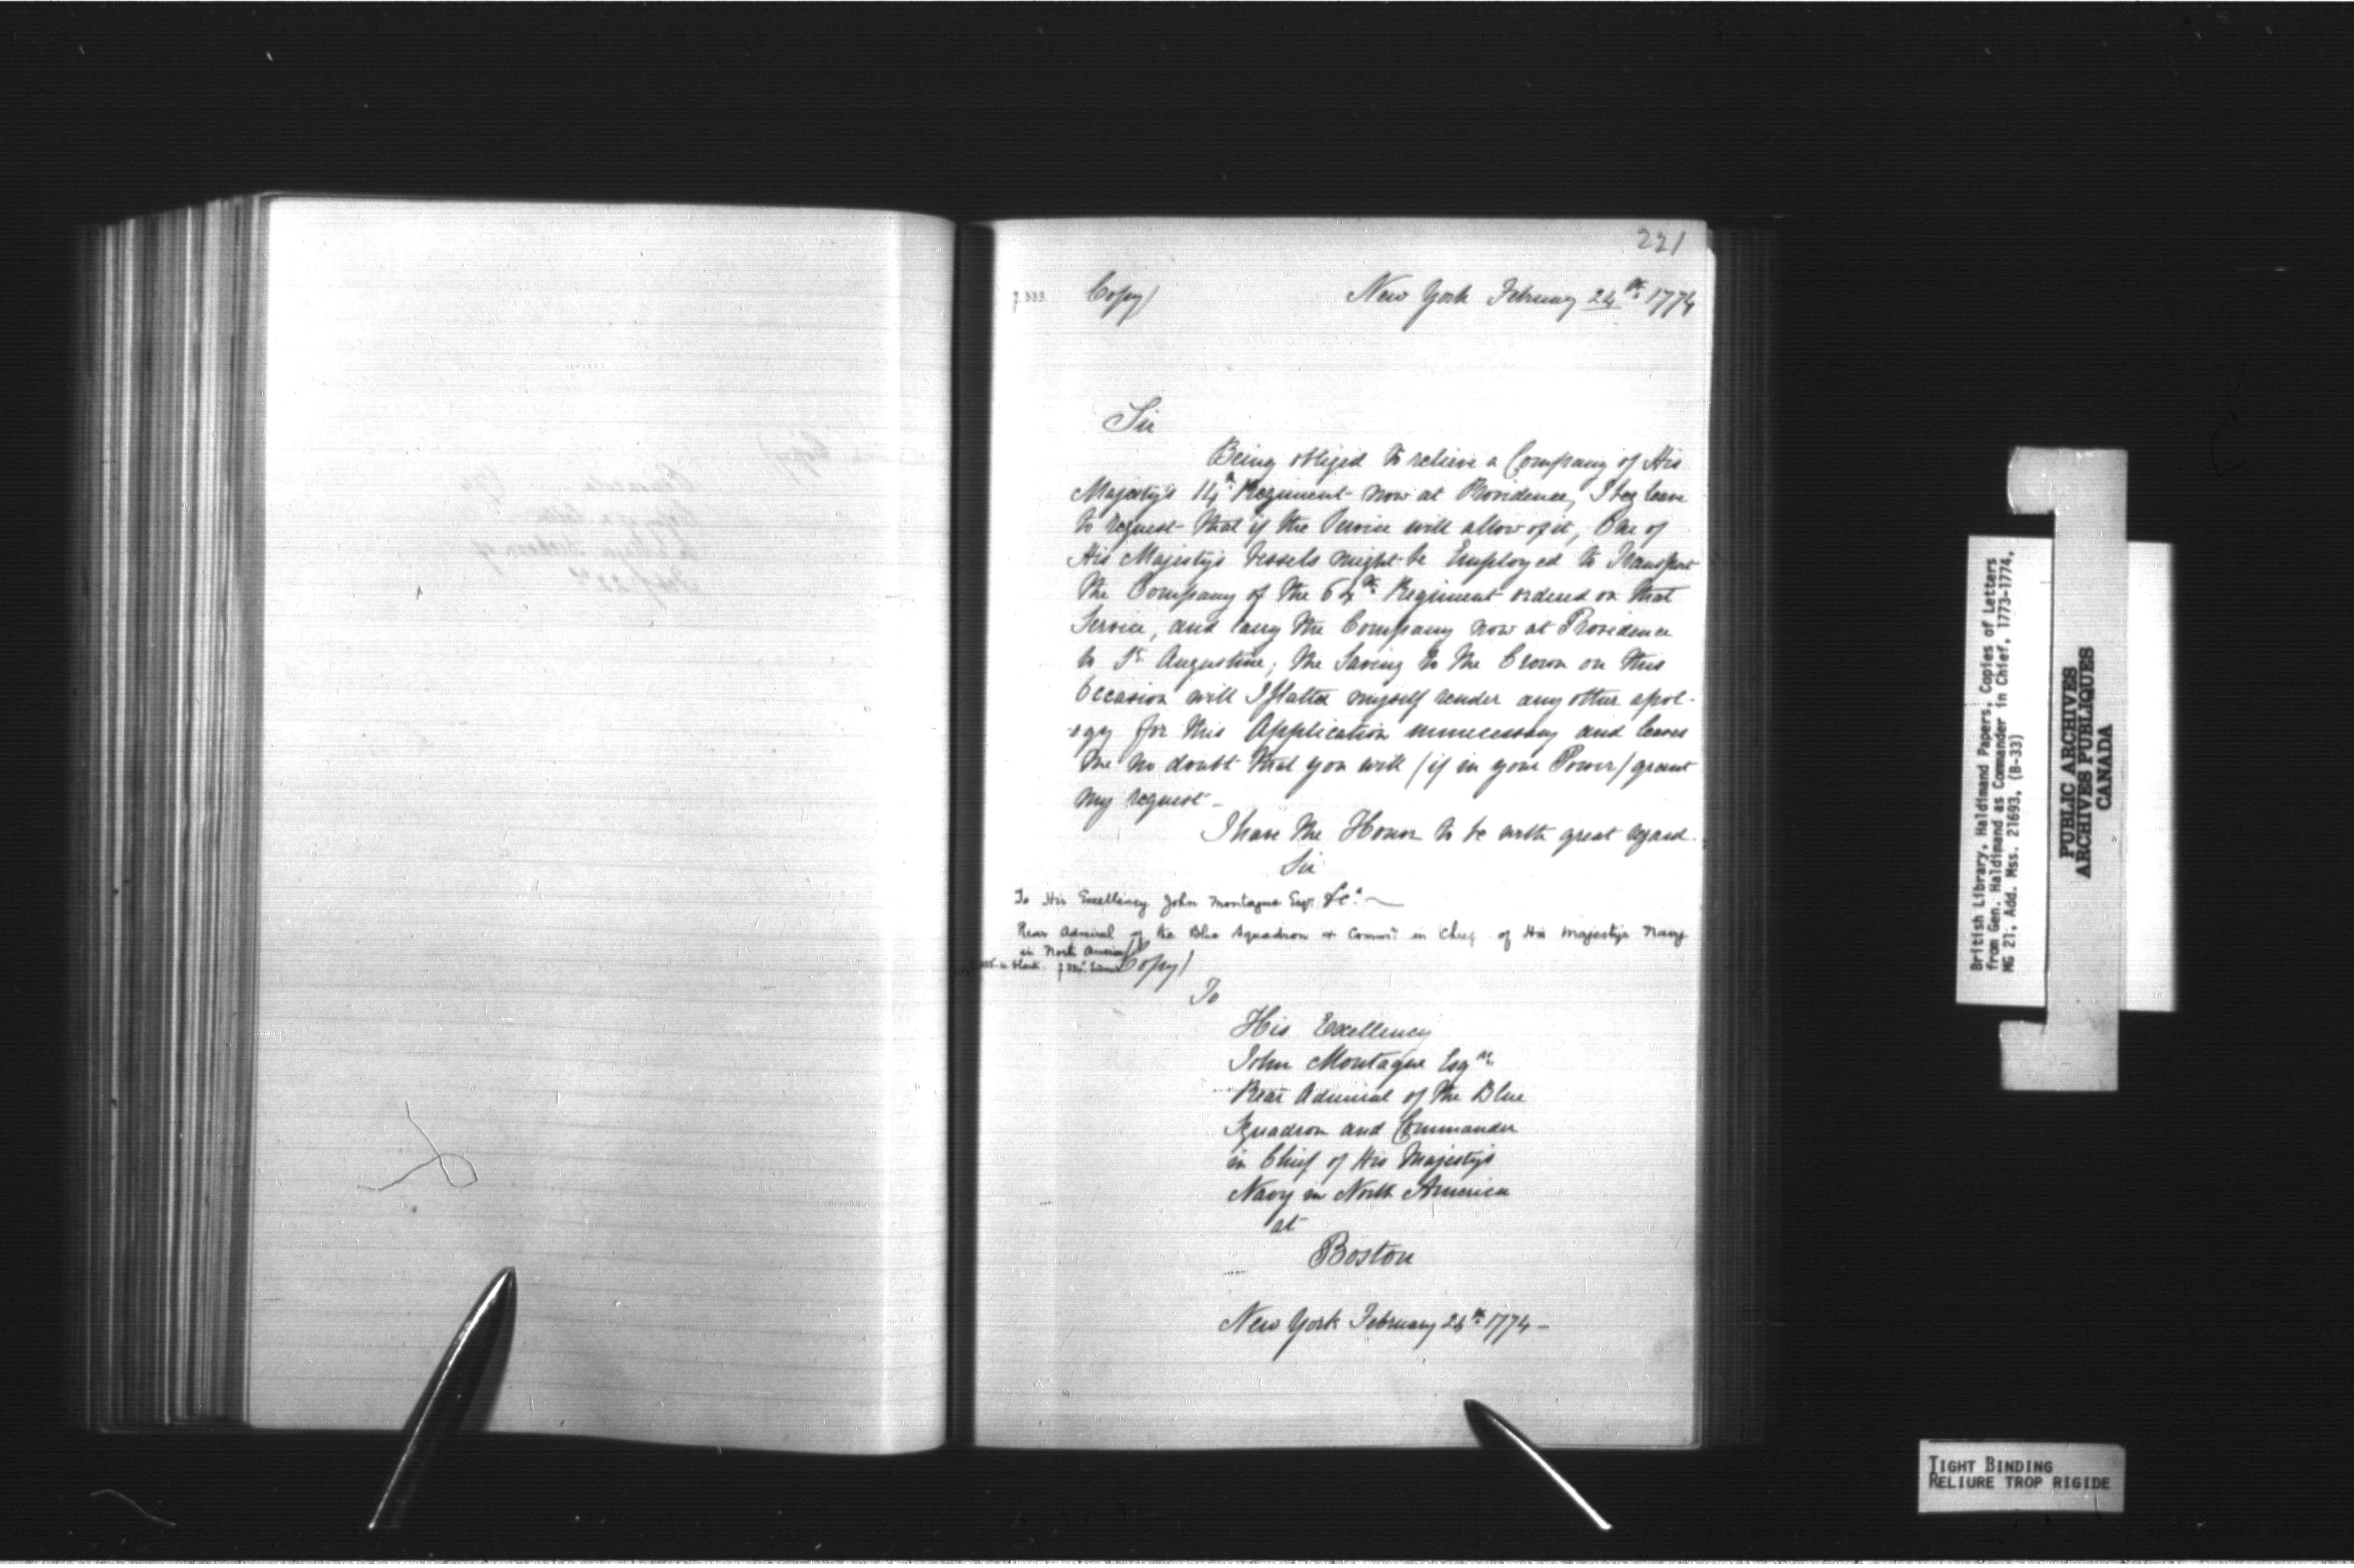 221
f. 333. Copy/ New York February 24th 1774
Sir
Being obliged to relieve a Company of His
Majesty's 14th Regiment now at Providence, I beg leave
to request that if the Service will allow of it, One of
His Majesty's Vessels might be Employed to Transport
the Company of the 64th Regiment ordered on that
Service, and carry the Company now at Providence
to St. Augustine; the Saving to the Crown on this
Occasion will I flatter myself render any other apol-
-ogy for this Application unnecessary and leaves
me no doubt that you will (if in your Power) grant
my request -
I have the Honor to be with great regard.
Sir
To His Excellency John Montague Esqr. &ca.
Rear Admiral of the Blue Squadron & Commr. in Chief of His Majesty's Navy
in North America
Copy/
To
His Excellency
John Montague Esqr.
Rear Admiral of the Blue
Squadron and Commander
in Chief of His Majesty's
Navy in North America
at
Boston
New York February 24th 1774 -
British Library, Haldimand Papers, Copies of Letters
from Gen. Haldimand as Commander in Chief, 1773-1774,
MG 21, Add. Mss. 21693, (B-33)
PUBLIC ARCHIVES
ARCHIVES PUBLIQUES
CANADA
TIGHT BINDING
RELIURE TROP RIGIDE